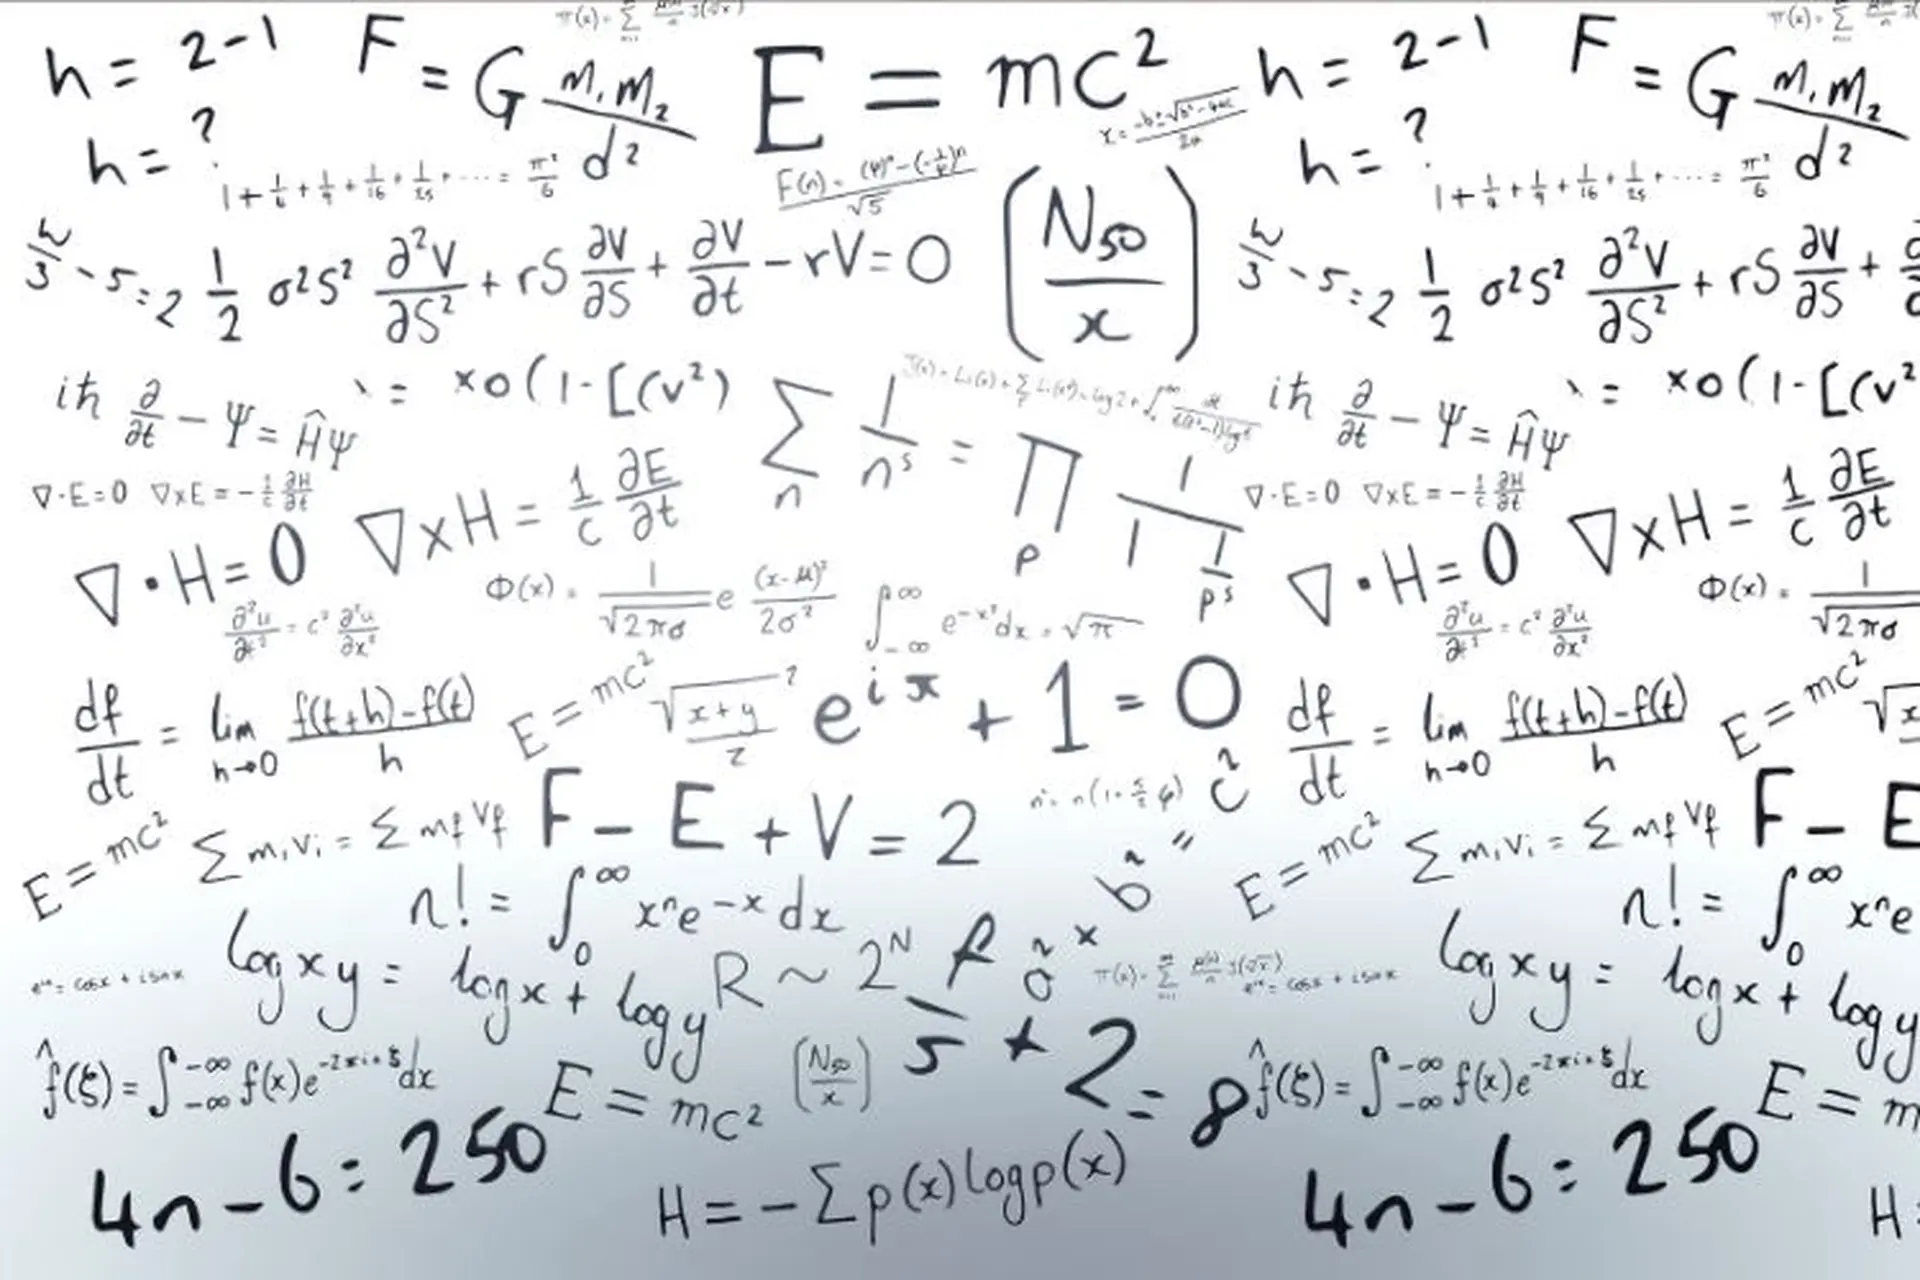 h = 2-1
F = G m₁m₂/d²
E = mc²
h = 2-1
F = G m₁m₂/d²
h = ?
1 + 1/6 + 1/9 + 1/16 + 1/25 + ... = π²/6
F(n) = (φ)ⁿ-(-1/φ)ⁿ/√5
x = -b±√b²-4ac/2a
h = ?
1 + 1/4 + 1/9 + 1/16 + 1/25 + ... = π²/6
w/3 - 5 = 2
1/2 σ²S² ∂²V/∂S² + rS ∂V/∂S + ∂V/∂t - rV = 0
(N₅₀/x)
w/3 - 5 = 2
1/2 σ²S² ∂²V/∂S² + rS ∂V/∂S +
iħ ∂/∂t - Ψ = ĤΨ
= xo(1-[(v²)
∑n 1/nˢ = ∏p 1/1 1/pˢ
iħ ∂/∂t - Ψ = ĤΨ
= xo(1-[(v²
∇·E=0 ∇xE = -1/c ∂H/∂t
∇xH = 1/c ∂E/∂t
∇·E=0 ∇xE = -1/c ∂H/∂t
∇xH = 1/c ∂E/∂t
∇·H = 0
Φ(x) = 1/√2πσ e (x-μ)²/2σ²
∫-∞ ∞ e⁻ˣ²dx = √π
∇·H = 0
Φ(x) = 1/√2πσ
∂²u/∂t² = c² ∂²u/∂x²
∂²u/∂t² = c² ∂²u/∂x²
df/dt = lim h→0 f(t+h)-f(t)/h
E = mc²
√x+y/z
e^iπ + 1 = 0
df/dt = lim h→0 f(t+h)-f(t)/h
E = mc²
E = mc²
∑mᵢvᵢ = ∑mfVf
F - E + V = 2
a² x b² = c²
E = mc²
∑mᵢvᵢ = ∑mfVf
F - E
n! = ∫0 ∞ xⁿe-x dx
n! = ∫0 ∞ xⁿe
eⁱˣ = cosx + isinx
logxy = logx + logy
R ~ 2ᴺ
π(x) = ∑
eⁱˣ = cosx + isinx
logxy = logx + logy
f̂(ξ) = ∫-∞ -∞ f(x)e^-2πixξdx
E = mc²
(N₅₀/x)
f/5 + 2 = 8
f̂(ξ) = ∫-∞ -∞ f(x)e^-2πixξdx
E = m
4n - 6 = 250
H = -∑p(x)logp(x)
4n - 6 = 250
H =